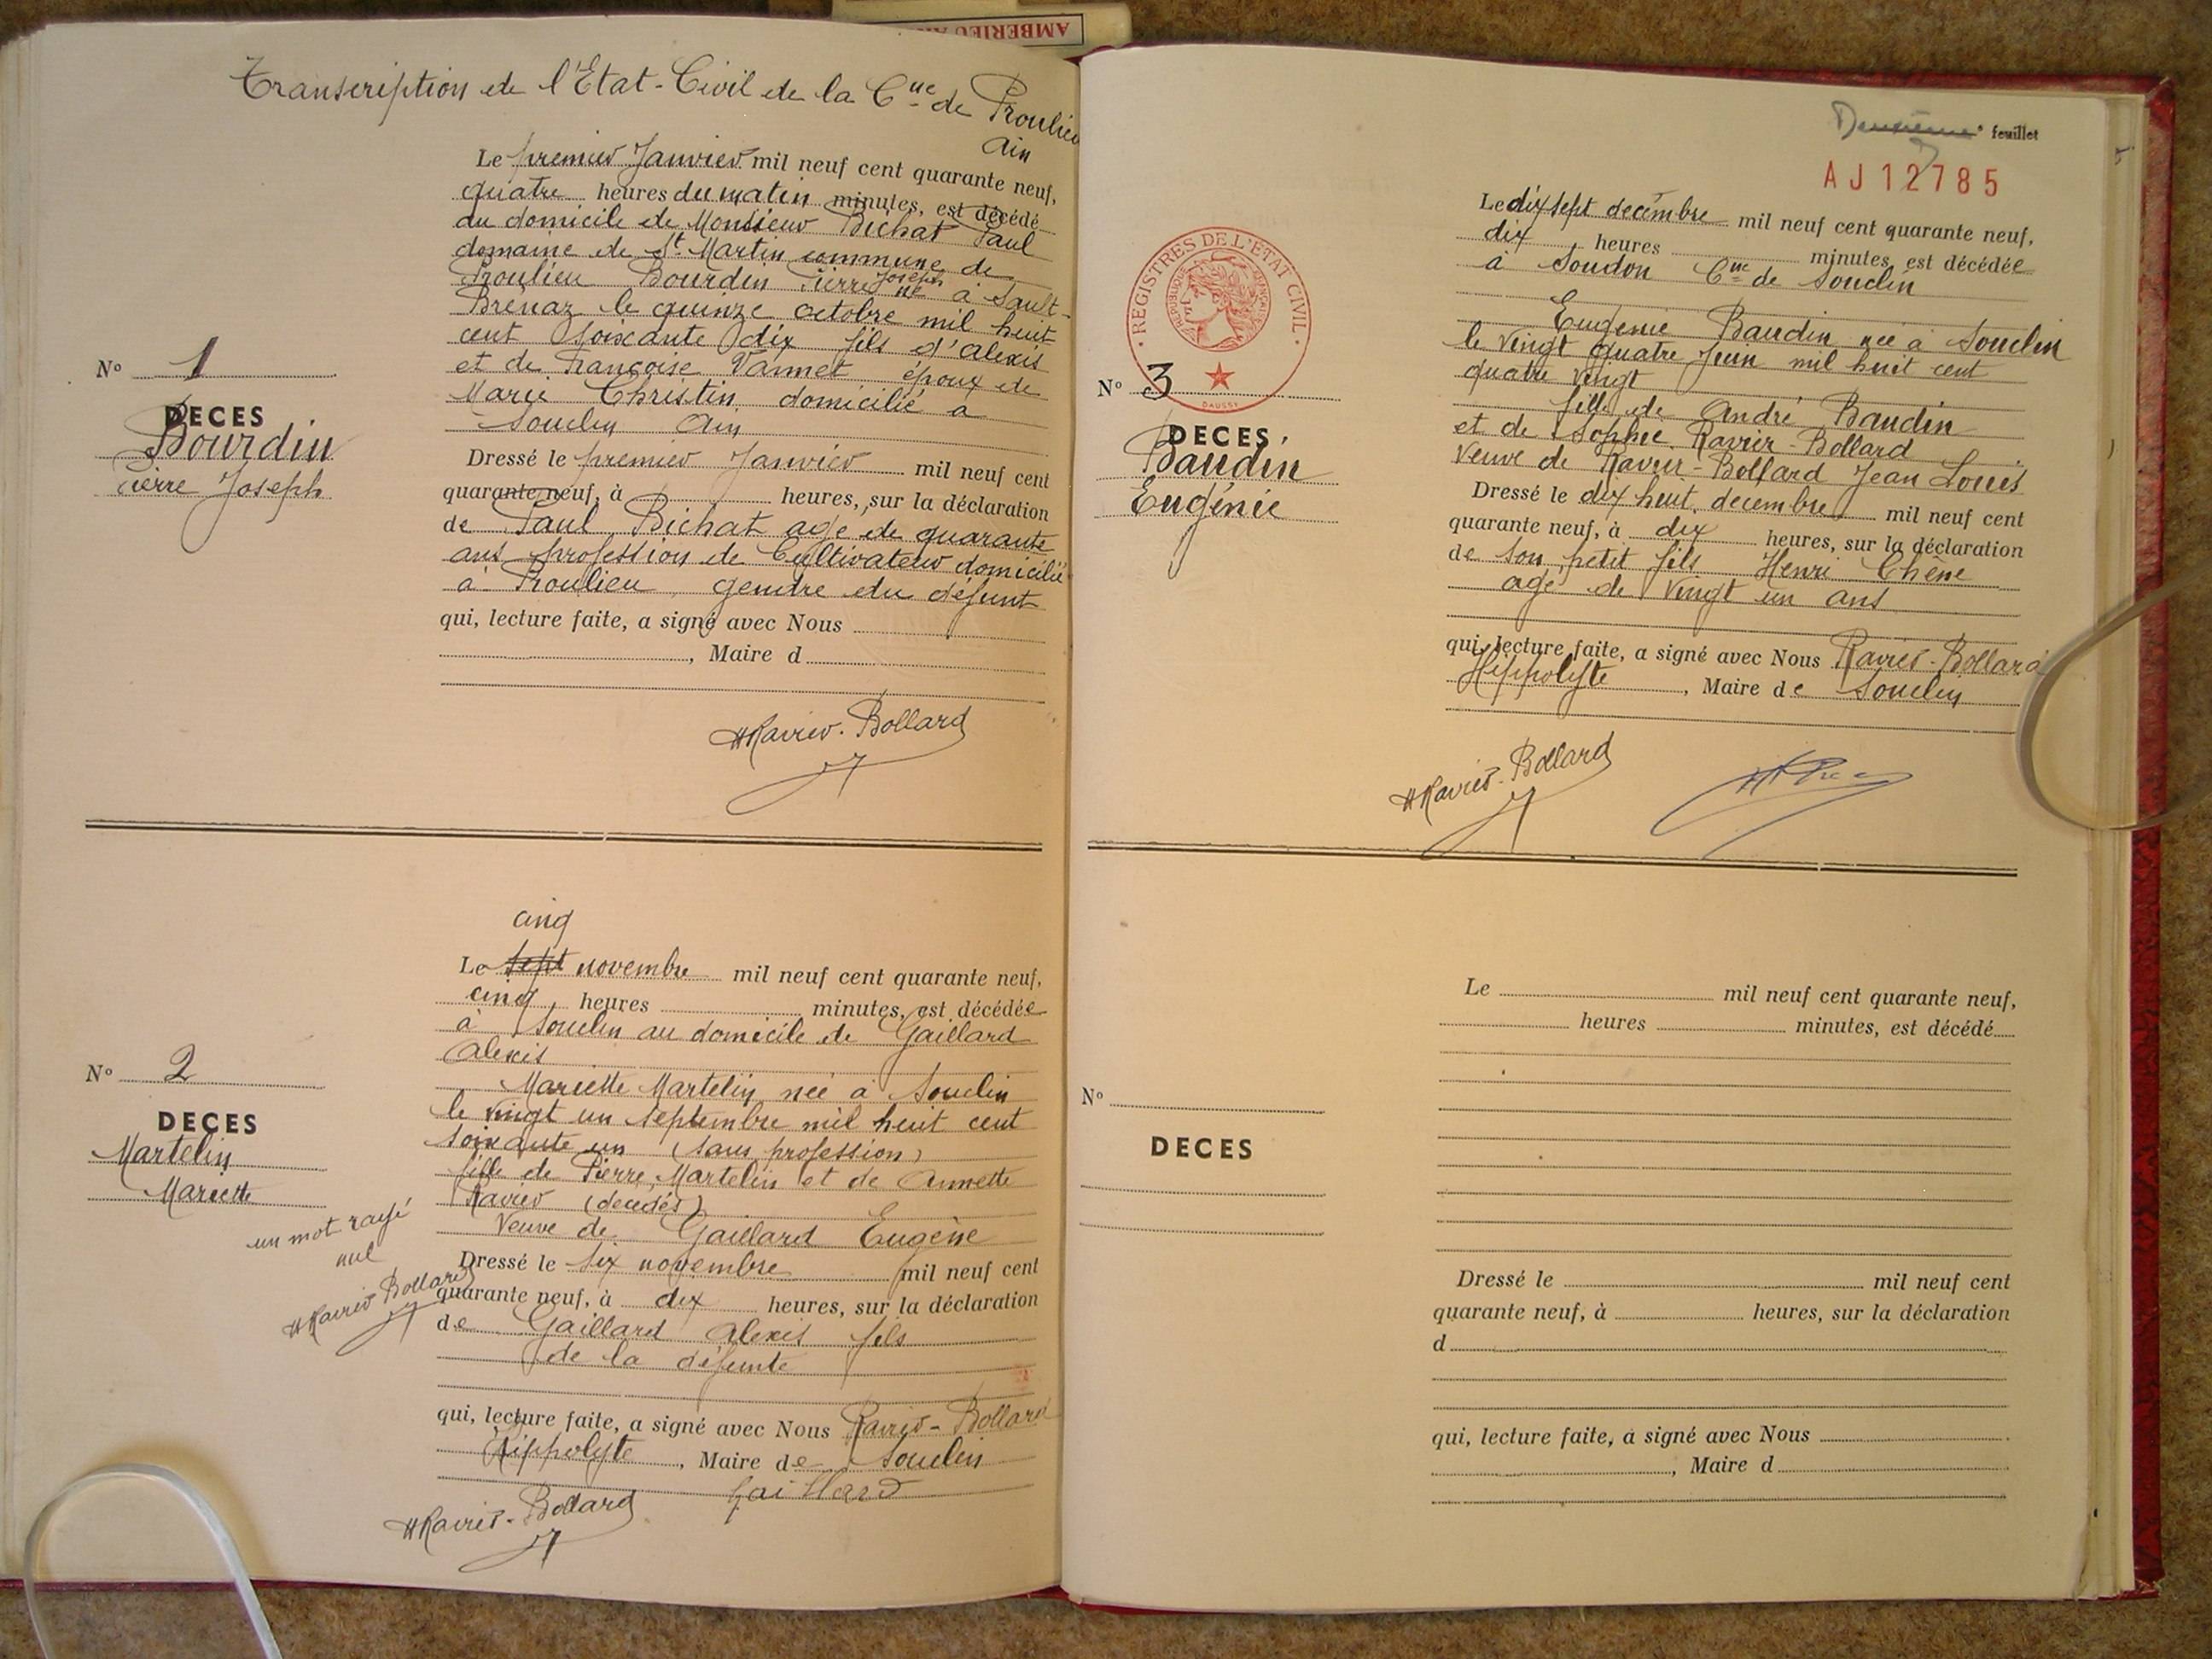 AMBERIEU
Transcription de l'Etat-Civil de la Cne de Proulieu
Ain
Le premier Janvier mil neuf cent quarante neuf,
quatre heures du matin minutes, est décédé
au domicile de Monsieur Bichat Paul
domaine de St Martin commune de
Proulieu Bourdin Pierre Joseph né à Sault-
Brenaz le quinze octobre mil huit
cent soixante dix fils d'Alexis
et de Françoise Vannet époux de
Marie Christin, domicilié à
Souclin Ain
Nº 1
DECES
Bourdin
Pierre Joseph
Dressé le premier Janvier mil neuf cent
quarante neuf, à heures, sur la déclaration
de Paul Bichat age de quarante
ans profession de Cultivateur domicilié
à Proulieu, gendre du défunt
qui, lecture faite, a signé avec Nous
, Maire d
HRavier-Bollard
cinq
Le sept novembre mil neuf cent quarante neuf,
cinq, heures minutes, est décédée
à Souclin au domicile de Gaillard
Alexis
Mariette Martelin née à Souclin
le vingt un septembre mil huit cent
soixante un (sans profession)
fille de Pierre Martelin et de Annette
Ravier (décédés)
Veuve de Gaillard Eugène
Nº 2
DECES
Martelin
Mariette
un mot rayé
nul
HRavier-Bollard
Dressé le six novembre mil neuf cent
quarante neuf, à dix heures, sur la déclaration
de Gaillard Alexis fils
de la défunte
qui, lecture faite, a signé avec Nous Ravier-Bollard
Hippolyte, Maire de Souclin
Gaillard
HRavier-Bollard
Deuxième feuillet
AJ12785
REGISTRES DE L'ÉTAT CIVIL
RÉPUBLIQUE FRANÇAISE
DAUSSY
Le dix sept décembre mil neuf cent quarante neuf,
dix, heures minutes, est décédée
à Soudon Cne de Souclin
Eugénie Baudin née à Souclin
le vingt quatre Juin mil huit cent
quatre vingt
fille de André Baudin
et de Sophie Ravier-Bollard
Veuve de Ravier-Bollard Jean Louis
Nº 3
DECES,
Baudin
Eugénie
Dressé le dix huit decembre mil neuf cent
quarante neuf, à dix heures, sur la déclaration
de son petit fils Henri Chêne
agé de vingt un ans
qui, lecture faite, a signé avec Nous Ravier-Bollard
Hippolyte, Maire de Souclin
HRavier-Bollard
Le mil neuf cent quarante neuf,
heures minutes, est décédé
Nº
DECES
Dressé le mil neuf cent
quarante neuf, à heures, sur la déclaration
d
qui, lecture faite, a signé avec Nous
, Maire d